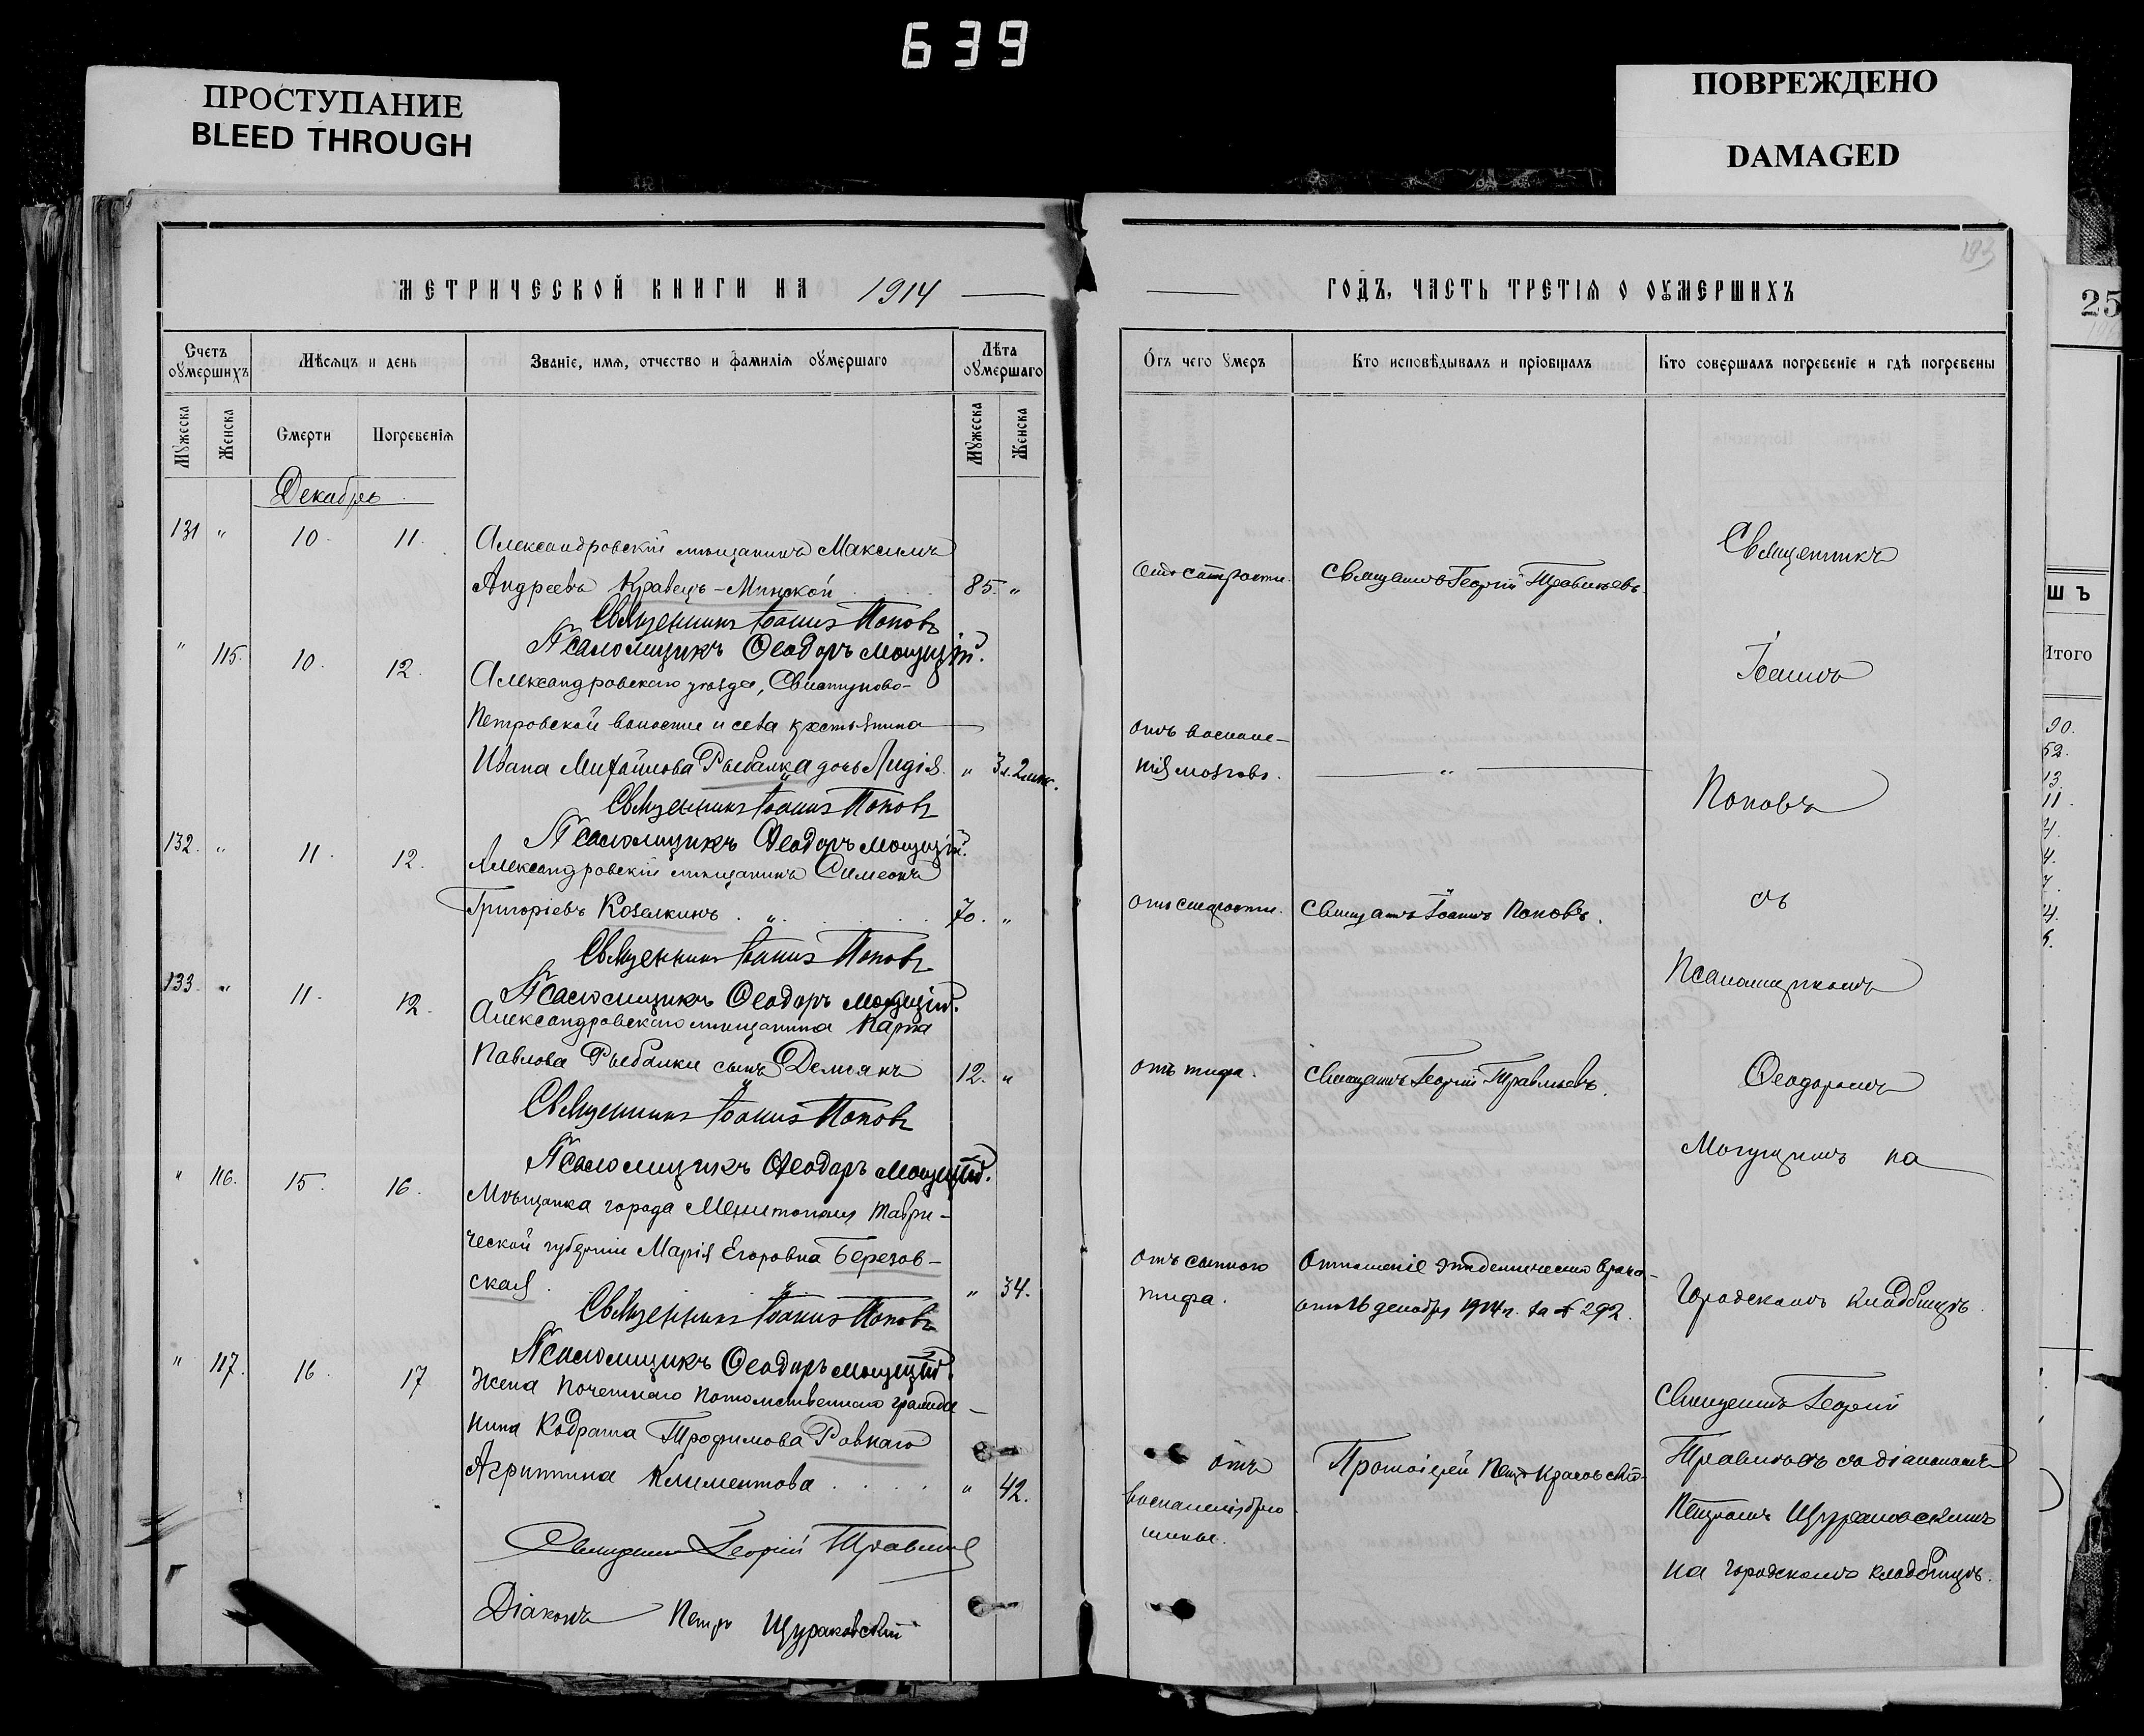 639
ПРОСТУПАНИЕ
BLEED THROUGH
ПОВРЕЖДЕНО
DAMAGED
МЕТРИЧЕСКОЙ КНИГИ НА 1914
Счетъ оумершихъ
Мѣсяцъ и день
Званіе, имя, отчество и фамилія оумершаго
Лѣта оумершаго
Мужеска
Женска
Смерти
Погребенія
Мужеска
Женска
Декабрь
131 " 10. 11. Александровскій мѣщанинъ Максимъ
Андреевъ Кравецъ-Минской 85. "
Священникъ Іоаннъ Поповъ
Псаломщикъ Ѳеодоръ Могущій.
" 115. 10. 12. Александровскаго уѣзда, Свистуново-
Петровской волости и села крестьянина
Ивана Михайлова Рыбалка дочь Лидія. " 3 л. 2 мѣс.
Священникъ Іоаннъ Поповъ
Псаломщикъ Ѳеодоръ Могущій.
132. " 11. 12. Александровскій мѣщанинъ Симеонъ
Григоріевъ Козелкинъ. 70. "
Священникъ Іоаннъ Поповъ
Псаломщикъ Ѳеодоръ Могущій.
133. " 11. 12. Александровскаго мѣщанина Карпа
Павлова Рыбалки сынъ Демьянъ 12. "
Священникъ Іоаннъ Поповъ
Псаломщикъ Ѳеодоръ Могущій.
" 116. 15. 16. Мѣщанка города Мелитополя Таври-
ческой губерніи Марія Егоровна Березов-
ская. " 34.
Священникъ Іоаннъ Поповъ
Псаломщикъ Ѳеодоръ Могущій.
" 117. 16. 17 Жена Почетнаго Потомственнаго гражда-
нина Кодрата Трофимова Ровнаго
Агриппина Климентова " 42.
Священникъ Георгій Травлѣевъ
Діаконъ Петръ Щураковскій
193
ГОДЪ, ЧАСТЬ ТРЕТІЯ О ОУМЕРШИХЪ
Отъ чего умеръ
Кто исповѣдывалъ и пріобщалъ
Кто совершалъ погребеніе и гдѣ погребены
Священникъ
отъ старости. Священ. Георгій Травлѣевъ.
Іоаннъ
отъ воспале-
нія мозговъ. "
Поповъ
отъ старости. Священ. Іоаннъ Поповъ.
съ
Псаломщикомъ
отъ тифа. Священ. Георгій Травлѣевъ.
Ѳеодоромъ
Могущимъ на
отъ сыпного
тифа.
Отношеніе эпидемическаго врача
отъ 16 декабря 1914 г. за № 292.
Городскомъ кладбищѣ.
Священ. Георгій
Травлѣевъ съ діакономъ
Петромъ Щураковскимъ
на городскомъ кладбищѣ.
отъ
воспаленія брю-
шины.
Протоіерей Петр
25
ШЪ
Итого
90.
52.
13.
11.
4.
4.
7.
4.